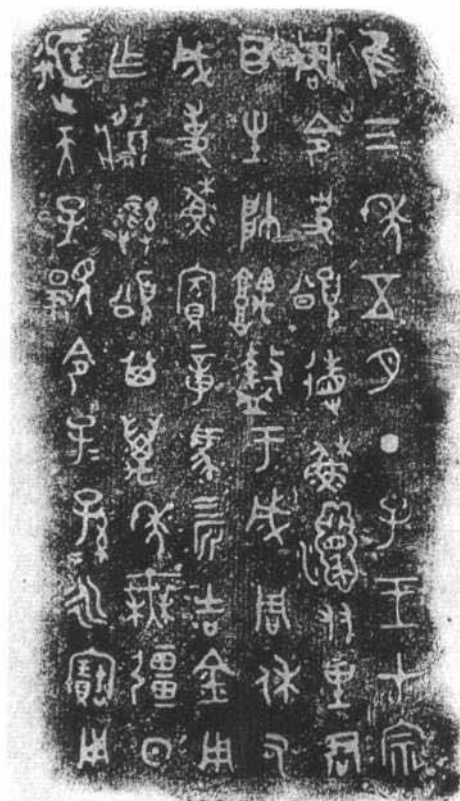 隹三年五月丁子王才宗
周令史頌省穌㵒友里君
百生帥𩛥盩于成周休又
成事穌賓章馬四匹吉金用
乍䵼彝頌其萬年無疆日
天子令子=孫=永寶用